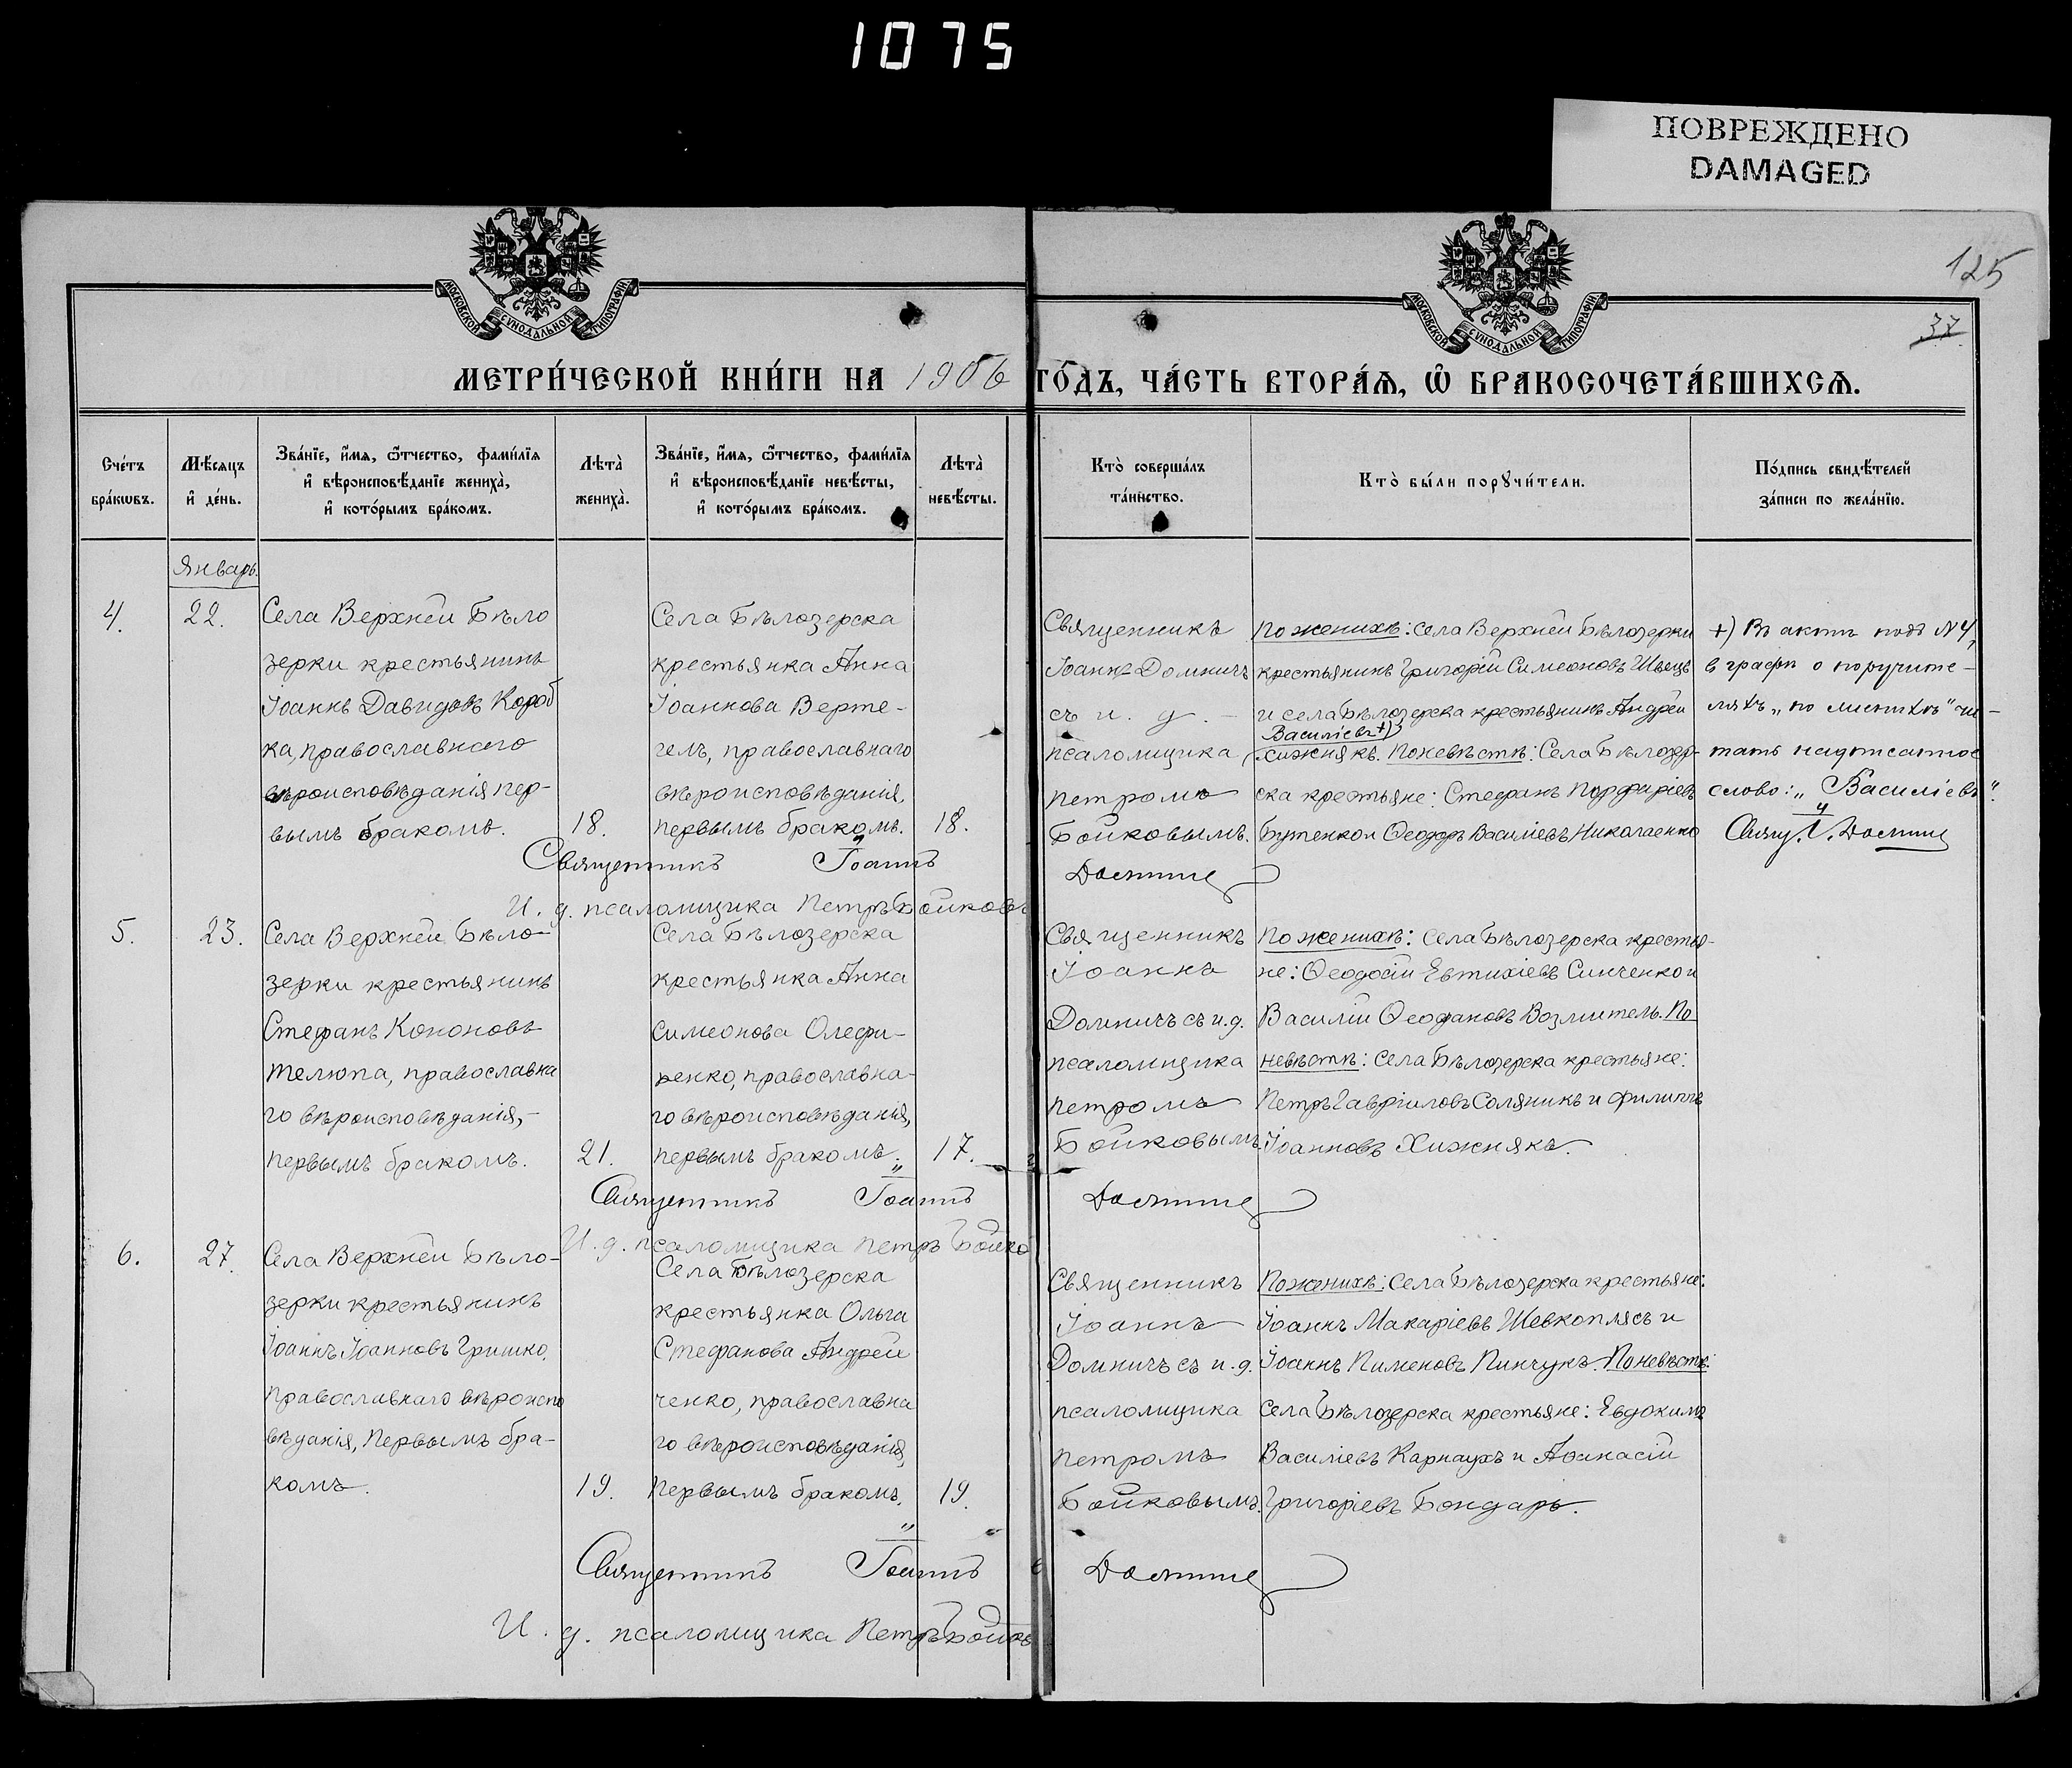 1075
ПОВРЕЖДЕНО
DAMAGED
МОСКОВСКОЙ СѴНОДАЛЬНОЙ ТИПОГРАФІИ
МОСКОВСКОЙ СѴНОДАЛЬНОЙ ТИПОГРАФІИ
125
37
МЕТРИ́ЧЕСКОЙ КНИ́ГИ НА 1906 ГО́ДЪ, ЧА́СТЬ ВТОРА́Ѧ, Ѡ҆ БРАКОСОЧЕТА́ВШИХСѦ.
Сче́тъ
бра́кѡвъ.
Мѣ́сѧцъ
и҆ де́нь.
Зва́нїе, и҆́мѧ, ѻ҆́тчество, фами́лїѧ
и҆ вѣроисповѣ́данїе жениха̀,
и҆ кото́рымъ бра́комъ.
Лѣта̀
жениха̀.
Зва́нїе, и҆́мѧ, ѻ҆́тчество, фами́лїѧ
и҆ вѣроисповѣ́данїе невѣ́сты,
и҆ кото́рымъ бра́комъ.
Лѣта̀
невѣ́сты.
Кто̀ соверша́лъ
та́инство.
Кто̀ бы́ли порꙋчи́тели.
По́дпись свидѣ́телей
за́писи по жела́нїю.
Январь.
4.
22.
Села Верхней Бѣло
зерки крестьянинъ
Іоаннъ Давидовъ Короб
ка, православнаго
вѣроисповѣданія пер-
вымъ бракомъ.
18.
Села Бѣлозерска
крестьянка Анна
Іоаннова Верте-
гелъ, православнаго
вѣроисповѣданія,
первымъ бракомъ.
18.
Священникъ
Іоаннъ Домничъ
съ и. д. -
псаломщика
Петромъ
Бойковымъ.
По женихѣ: села Верхней Бѣлозерки
крестьянинъ Григорій Симеоновъ Швецъ
и села Бѣлозерска крестьянинъ Андрей
Василіевъ +)
Хижнякъ. По невѣстѣ: Села Бѣлозер-
ска крестьяне: Стефанъ Порфиріевъ
Бутенко и Ѳеодоръ Василіевъ Николаенко
+) Въ актѣ подъ N 4,
в графѣ о поручите-
ляхъ „по женихѣ" чи-
тать надписанное
слово: „Василіевъ".
Свящ. І. Домничъ
Священникъ Іоаннъ Домничъ
И. д. псаломщика Петръ Бойковъ
5.
23.
Села Верхней Бѣло-
зерки крестьянинъ
Стефанъ Кононовъ
Телюпа, православна
го вѣроисповѣданія,-
первымъ бракомъ.
21.
Села Бѣлозерска
крестьянка Анна
Симеонова Олефи-
ренко, православна-
го вѣроисповѣданія,
первымъ бракомъ.
17.
Священникъ
Іоаннъ
Домничъ съ и. д.
псаломщика
Петромъ
Бойковымъ.
По женихѣ: Села Бѣлозерска крестья-
не: Ѳеодосій Евтихіевъ Синченко и
Василій Ѳеофановъ Возмитель. По
невѣстѣ: Села Бѣлозерска крестьяне:
Петръ Гавріиловъ Соляникъ и Филиппъ
Іоанновъ Хижнякъ.
Священникъ Іоаннъ Домничъ
И. д. псаломщика Петръ Бойко
6.
27.
Села Верхней Бѣло-
зерки крестьянинъ
Іоаннъ Іоанновъ Гришко,
православнаго вѣроиспо
вѣданія, первымъ бра-
комъ.
19.
Села Бѣлозерска
крестьянка Ольга
Стефанова Андрей
ченко, православна
го вѣроисповѣданія,
первымъ бракомъ.
19.
Священникъ
Іоаннъ
Домничъ съ и. д.
псаломщика
Петромъ
Бойковымъ.
По женихѣ: Села Бѣлозерска крестьяне:
Іоаннъ Макаріевъ Шевкоплясъ и
Іоаннъ Пименовъ Пинчукъ. По невѣстѣ:
Села Бѣлозерска крестьяне: Евдокимъ
Василіевъ Карнаухъ и Аѳанасій
Григоріевъ Бондарь.
Священникъ Іоаннъ Домничъ
И. д. псаломщика Петръ Бойковъ